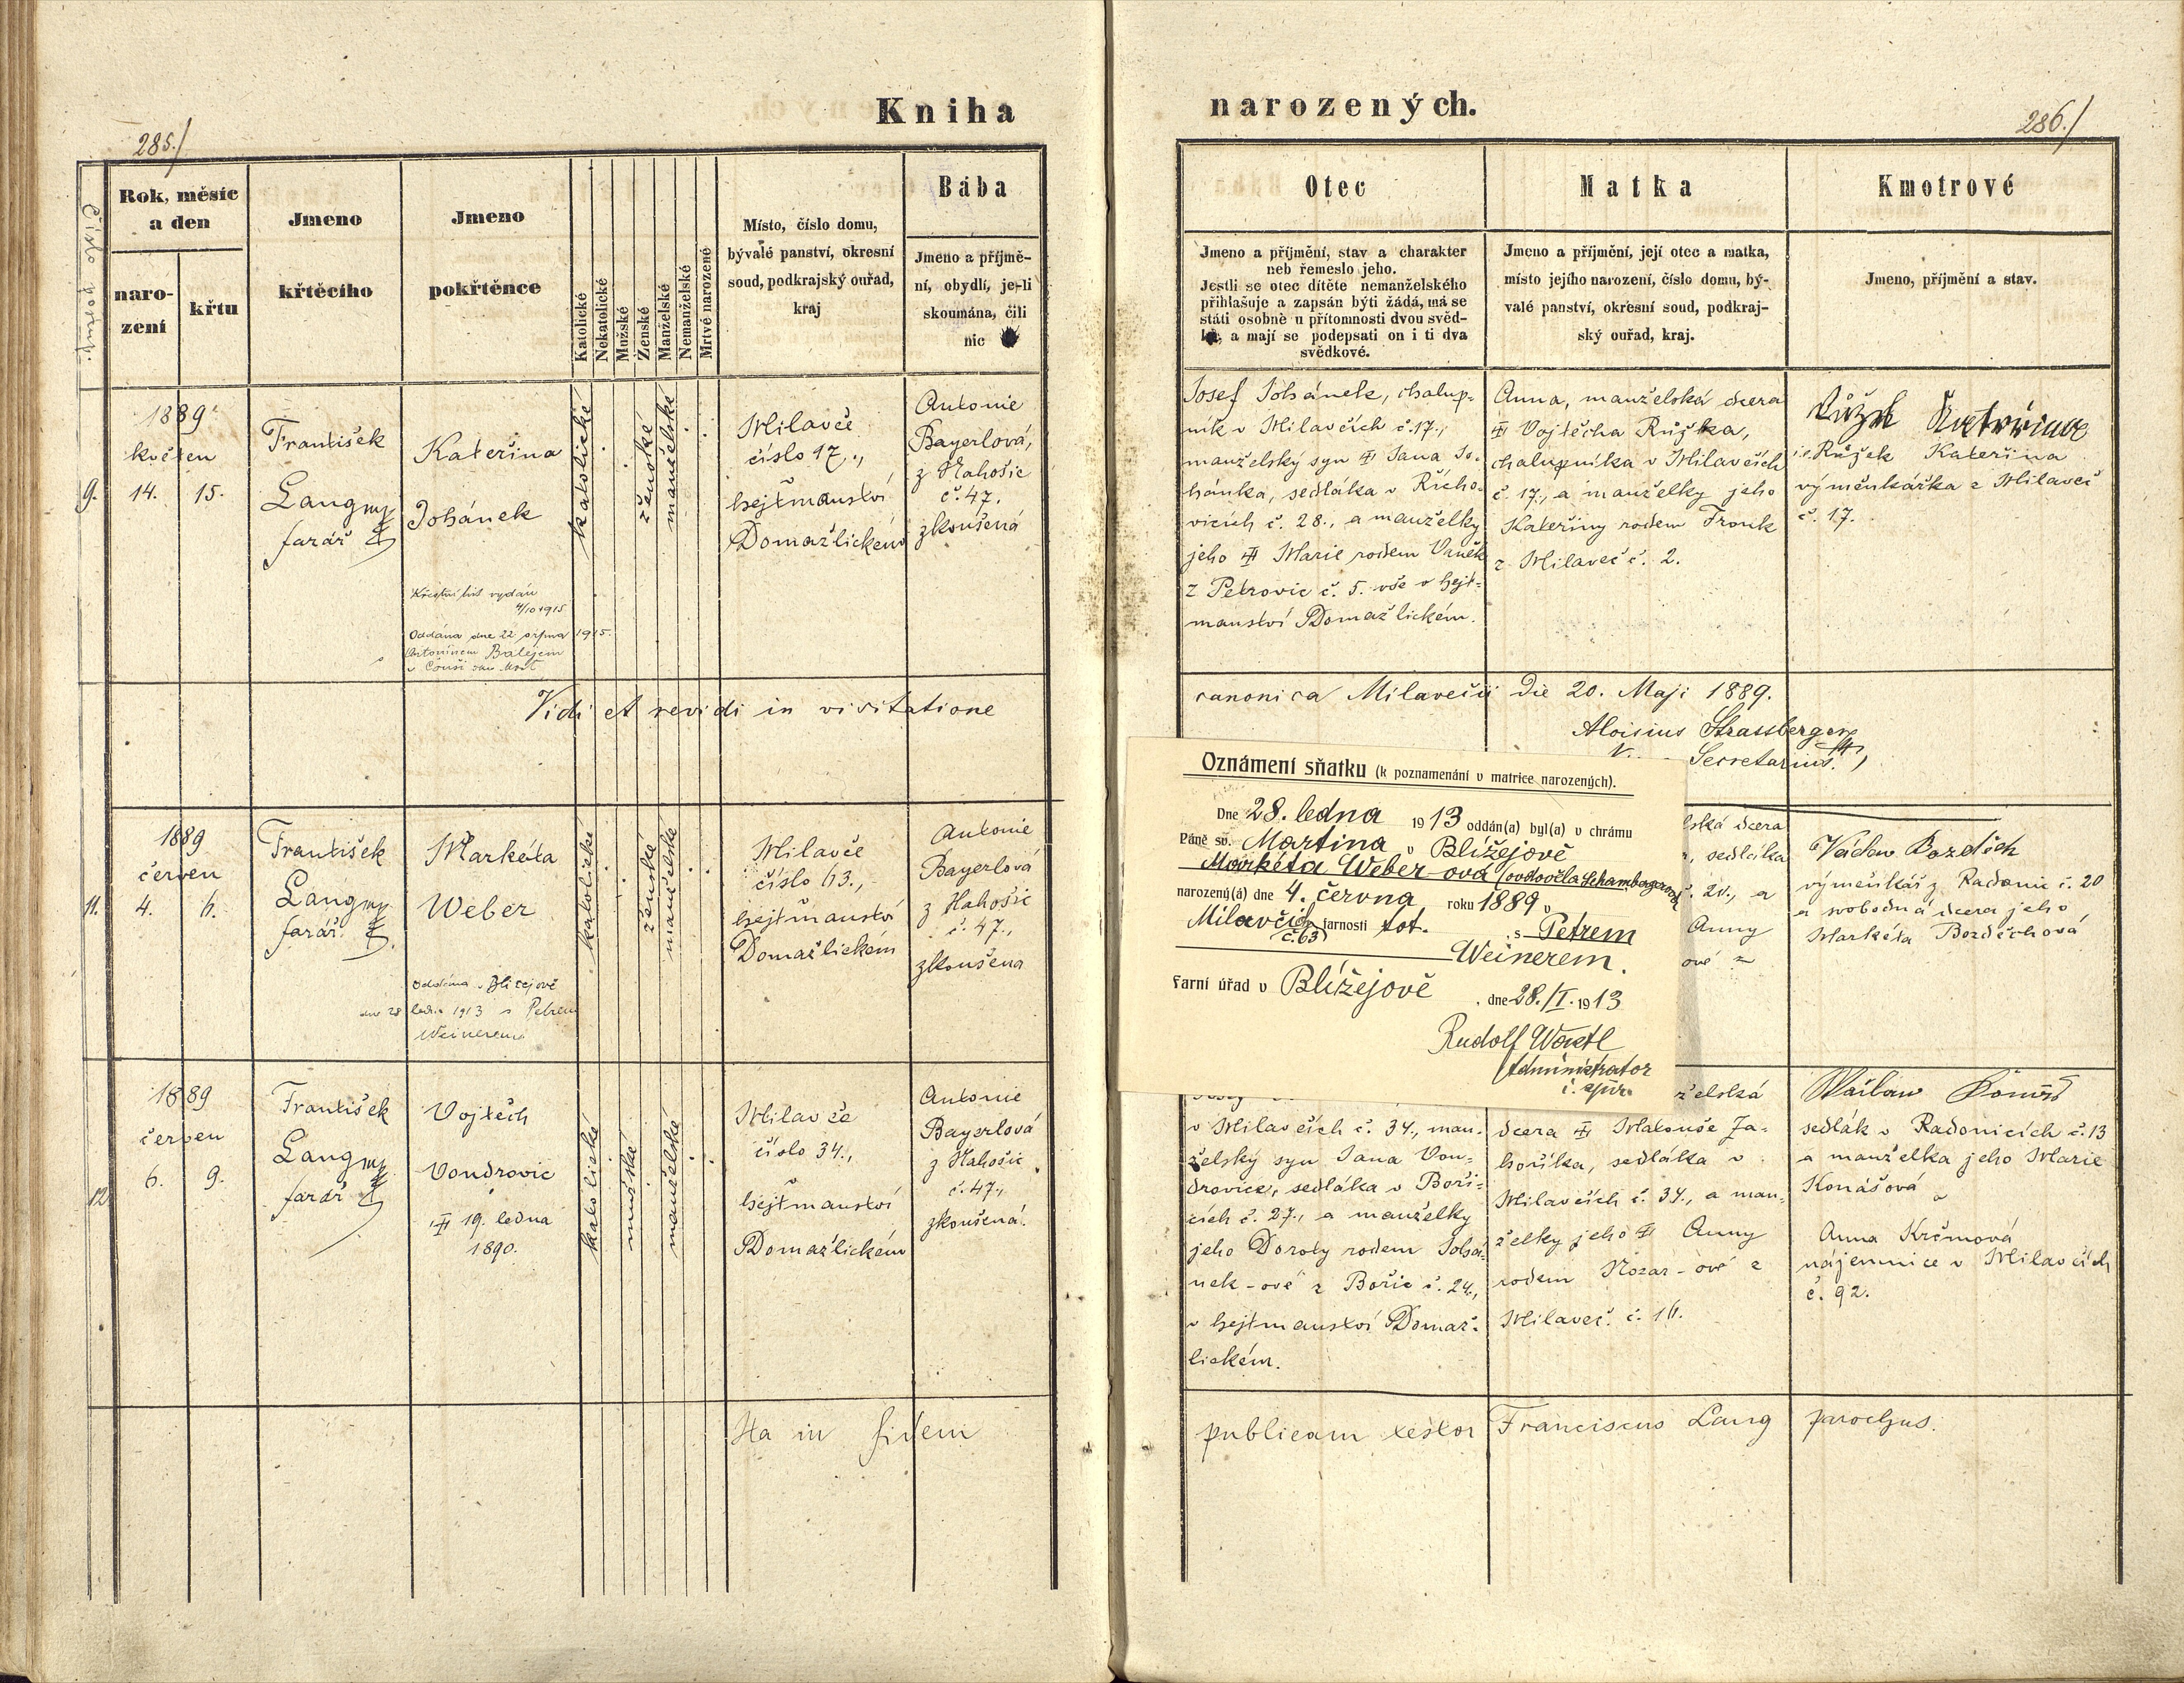 Kniha
285./
Číslo pořad.
Rok, měsíc
a den
naro-
zení
křtu
Jmeno
křtěcího
Jmeno
pokřtěnce
Katolické
Nekatolické
Mužské
Ženské
Manželské
Nemanželské
Mrtvě narozené
Místo, číslo domu,
bývalé panství, okresní
soud, podkrajský ouřad,
kraj
Bába
Jmeno a příjmě-
ní, obydlí, je-li
skoumána, čili
nic
9.
1889
květen
14. 15.
František
Lang mp
farář
Kateřina
Johánek
Křestní list vydán
4/10 1915
Oddána dne 22 srpna 1915.
Antonínem Balejem
katolické
ženské
manželské
Milavče
číslo 17.,
hejtmanství
Domažlickém
Antonie
Bayerlová,
z Nahošic
č. 47.
zkoušená
Vidi et revidi in visitatione
11.
1889
červen
4. 6.
František
Lang mp
farář.
Markéta
Weber
Oddána v Blížejově
dne 28 ledna 1913 s Petrem
Weinerem.
katolické
ženské
manželské
Milavče
číslo 63.,
hejtmanství
Domažlickém
Antonie
Bayerlová
z Nahošic
č. 47.,
zkoušena
12.
1889
červen
6. 9.
František
Lang mp
farář
Vojtěch
Vondrovic
19. ledna
1890.
katolické
mužské
manželské
Milavče
číslo 34.,
v
hejtmanství
Domažlickém
Antonie
Bayerlová
z Nahošic
č. 47.,
zkoušená.
Ita in fidem
narozených.
286./
Otec
Jmeno a příjmění, stav a charakter
neb řemeslo jeho.
Jestli se otec dítěte nemanželského
přihlašuje a zapsán býti žádá, má se
státi osobně u přítomnosti dvou svěd-
a mají se podepsati on i ti dva
svědkové.
Matka
Jmeno a příjmění, její otec a matka,
místo jejího narození, číslo domu, bý-
valé panství, okresní soud, podkraj-
ský ouřad, kraj.
Kmotrové
Jmeno, příjmění a stav.
Josef Johánek, chalup-
ník v Milavčích č. 17.,
manželský syn Jana Jo-
hánka, sedláka v Řícho-
vicích č. 28., a manželky
jeho Marie rodem Vaněk
z Petrovic č. 5. vše v hejt-
manství Domažlickém.
Anna, manželská dcera
Vojtěcha Růžka,
chalupníka v Milavčích
č. 17., a manželky jeho
Kateřiny rodem Fronk
z Milaveč č. 2.
Růžek Kateřina
i.e. Růžek Kateřina
výměnkářka z Milaveč
č. 17.
canonica Milavečii die 20. Maji 1889.
Aloisius Strassberger
Secretarius.
Oznámení sňatku (k poznamenání v matrice narozených).
Dne 28. ledna 1913 oddán(a) byl(a) v chrámu
Páně sv. Martina v Blížejově
Markéta Weber-ová (ovdověla Schambergerová
narozený(á) dne 4. června roku 1889 v
Milavčích farnosti tot. s Petrem
č. 63
Weinerem.
Farní úřad v Blížejově, dne 28./I. 1913
Rudolf Wastl
Administrator
i. spir.
lská dcera
, sedláka
č. 20., a
Anny
ové z
Václav Bozděch
výměnkář z Radonic č. 20
a svobodná dcera jeho
Markéta Bozděchová
v Milavčích č. 34., man-
želský syn Jana Von-
drovice, sedláka v Boři-
cích č. 27., a manželky
jeho Doroty rodem Johá-
nek-ové z Bořic č. 24.,
v hejtmanství Domaž-
lickém.
želská
dcera Matouše Za-
hoříka, sedláka v
Milavčích č. 34., a man-
želky jeho Anny
rodem Kozar-ové z
Milaveč. č. 16.
Václav Konáš
sedlák v Radonicích č. 13
a manželka jeho Marie
Konášová
a
Anna Krčmová
nájemnice v Milavčích
č. 92.
publicam testor Franciscus Lang parochus.